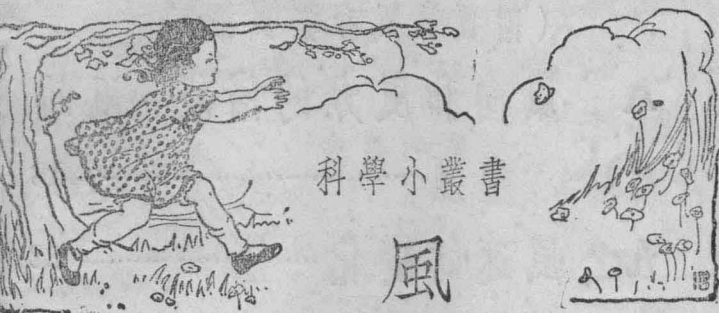 科學小叢書
風